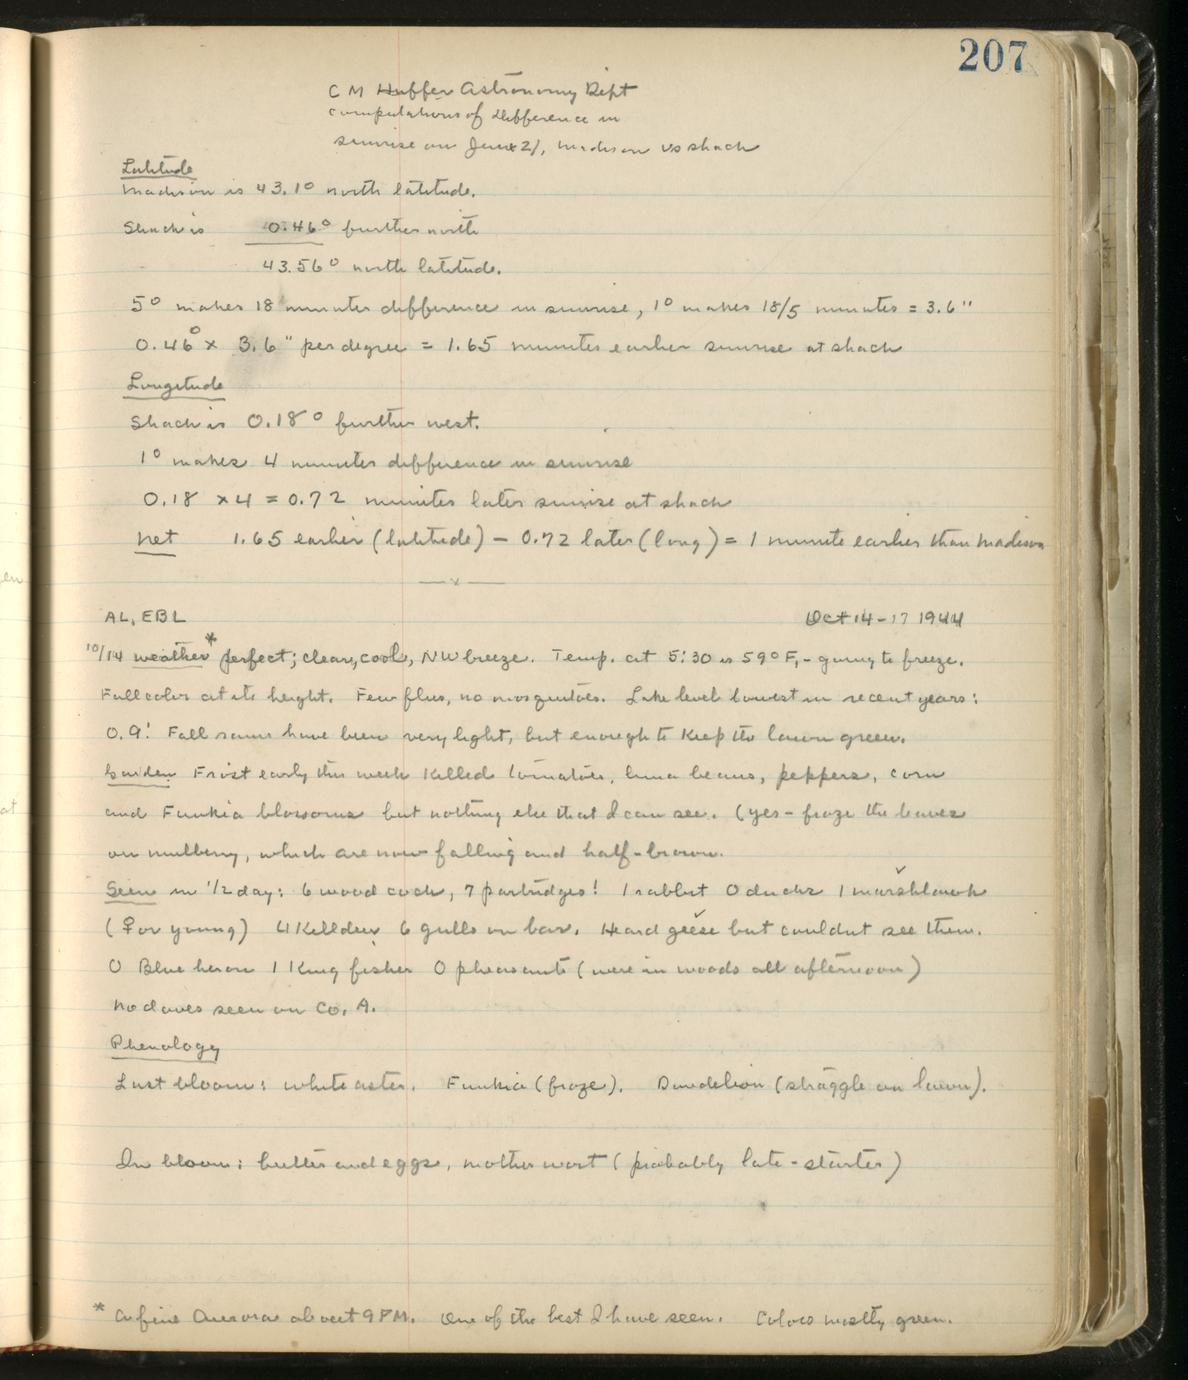 207
C M Huffer Astronomy Dept
computations of difference in
sunrise on June 21, Madison vs shack
Latitude
Madison is 43.1° north latitude.
Shack is 0.46° further north
43.56° north latitude.
5° makes 18 minutes difference in sunrise, 1° makes 18/5 minutes = 3.6"
0.46° x 3.6" per degree = 1.65 minutes earlier sunrise at shack
Longitude
Shack is 0.18° further west.
1° makes 4 minutes difference in sunrise
0.18 x 4 = 0.72 minutes later sunrise at shack
net 1.65 earlier (latitude) - 0.72 later (long) = 1 minute earlier than Madison
—x—
AL, EBL Oct 14-17 1944
10/14 weather* perfect; clear, cool, NW breeze. Temp. at 5:30 is 59°F, - going to freeze.
Fall color at its height. Few flies, no mosquitoes. Lake level lowest in recent years:
0.9! Fall rains have been very light, but enough to keep the lawn green.
Garden Frost early this week killed tomatoes, lima beans, peppers, corn
and Funkia blossoms but nothing else that I can see. (yes - froze the leaves
on mulberry, which are now falling and half-brown.
Seen in 1/2 day: 6 woodcock, 7 partridges! 1 rabbit 0 ducks 1 marshhawk
(♀ or young) 4 Killdeer 6 gulls on bar. Heard geese but couldnt see them.
0 Blue heron 1 Kingfisher 0 pheasants (were in woods all afternoon)
No doves seen on Co. A.
Phenology
Last bloom: white aster. Funkia (froze). Dandelion (straggle on lawn).
In bloom: butter and eggs, motherwort (probably late-starter)
* A fine Aurora about 9 PM. One of the best I have seen. Colors mostly green.